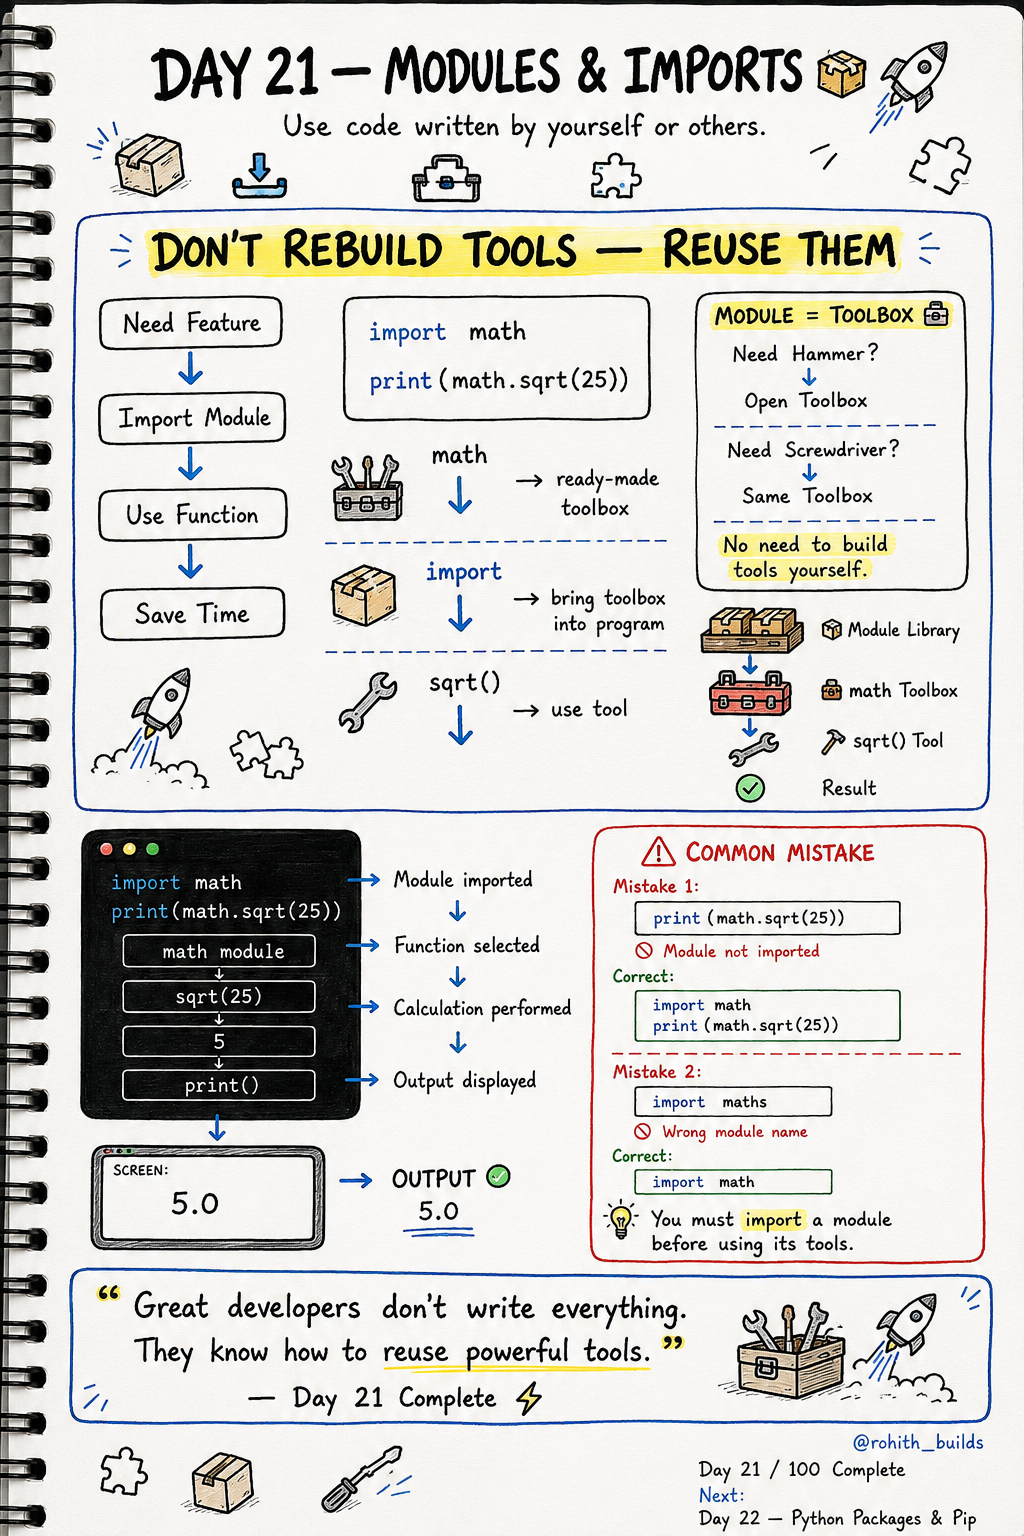 DAY 21 — MODULES & IMPORTS
Use code written by yourself or others.
DON'T REBUILD TOOLS — REUSE THEM
Need Feature
Import Module
Use Function
Save Time
import math
print(math.sqrt(25))
math
→ ready-made
toolbox
import
→ bring toolbox
into program
sqrt()
→ use tool
MODULE = TOOLBOX
Need Hammer?
Open Toolbox
Need Screwdriver?
Same Toolbox
No need to build
tools yourself.
Module Library
math Toolbox
sqrt() Tool
Result
import math
print(math.sqrt(25))
math module
sqrt(25)
5
print()
Module imported
Function selected
Calculation performed
Output displayed
SCREEN:
5.0
OUTPUT
5.0
COMMON MISTAKE
Mistake 1:
print(math.sqrt(25))
Module not imported
Correct:
import math
print(math.sqrt(25))
Mistake 2:
import maths
Wrong module name
Correct:
import math
You must import a module
before using its tools.
“ Great developers don't write everything.
They know how to reuse powerful tools. ”
— Day 21 Complete
@rohith_builds
Day 21 / 100 Complete
Next:
Day 22 — Python Packages & Pip